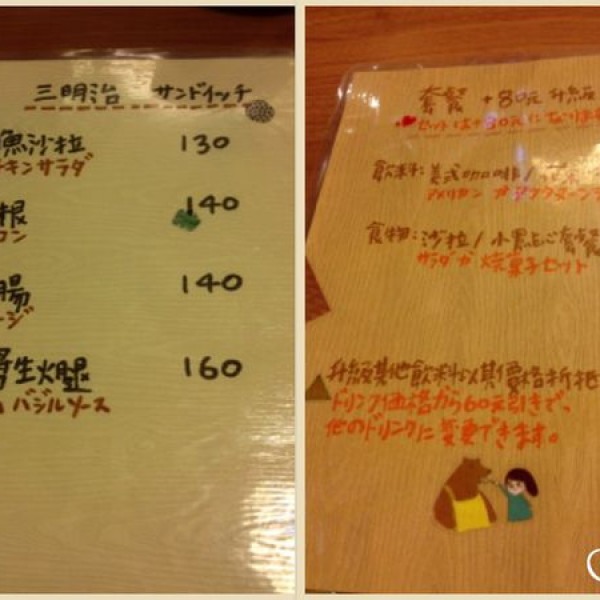 三明治 サンドイッチ
魚沙拉 130
チキンサラダ
根 140
コン
腸 140
ージ
生火腿 160
バジルソース
套餐 +80元 升級
セットは+80元になりま
飲料: 美式咖啡/
アメリカン か アフタヌーン
食物: 沙拉/小點心套餐
サラダ か 焼菓子セット
升級其他飲料以其價格折抵
ドリンク価格から60元引きで、
他のドリンクに変更できます。